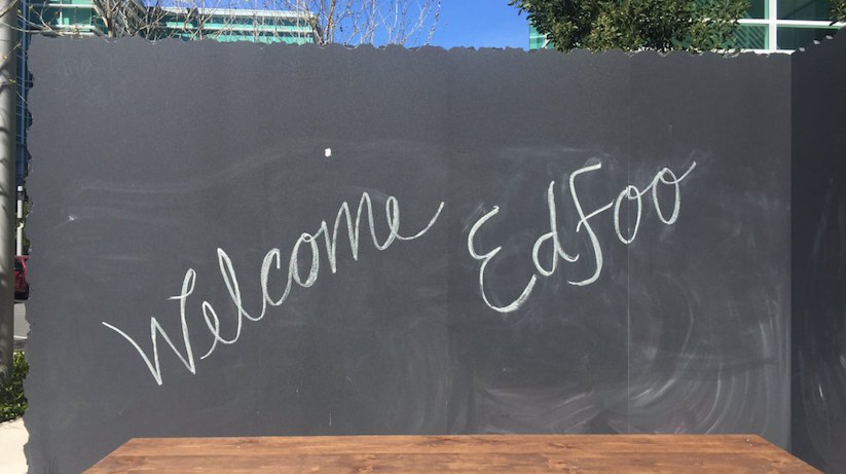 Welcome EdFoo